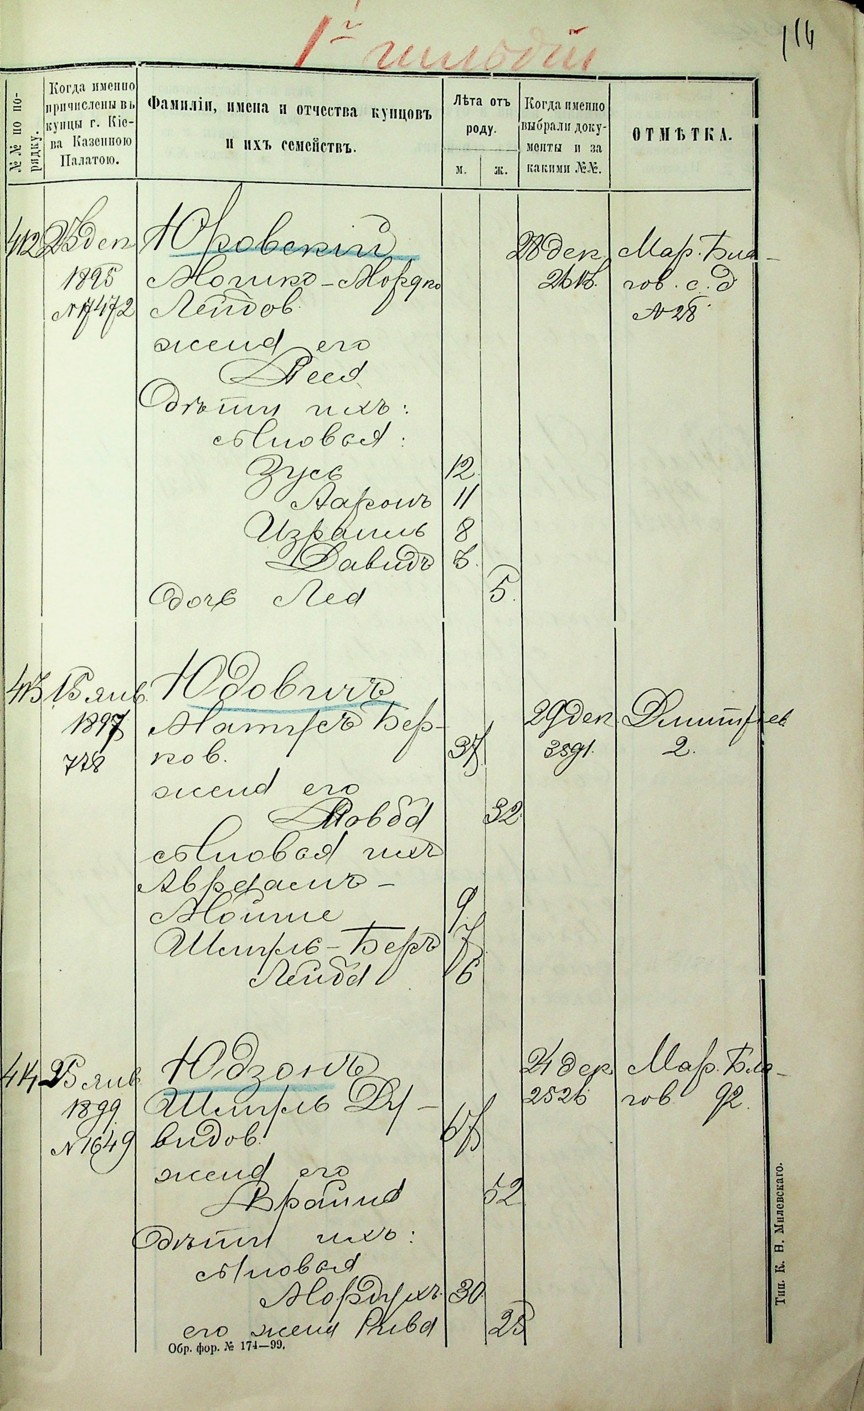 1й гильдіи
114
№№ по по-
рядку.
Когда именно
причислены въ
купцы г. Кіе-
ва Казенною
Палатою.
Фамиліи, имена и отчества купцовъ
и ихъ семействъ.
Лѣта отъ
роду.
м.
ж.
Когда именно
выбрали доку-
менты и за
какими №№.
ОТМѢТКА.
412
23 дек
1895
№ 17472
Юровскій
Мошко-Мордко
Лейбов.
жена его
Песя
Дѣти ихъ:
сыновья:
Зусь 12
Ааронъ 11
Израиль 8
Давидъ
дочь Лея 5.
28 дек
Мар. Бла-
гов. с. д
№ 28
413
15 янв.
1897
778
Юдовичъ
Матусъ Бер-
ков. 37
жена его
Ховба 32
сыновья ихъ
Авраамъ-
Мойше 9
Шмуль-Беръ 7
Лейба 6
29 дек.
3591.
Дмитріев
2.
414
25 янв
1899
№ 1649
Юдзонъ
Шмуль Ду-
видов. 57
жена его
Брайна 52
Дѣти ихъ:
сыновья
Мордухъ 30
его жена Рива 25
24 дек
2526
Мар. Бла-
гов. 92.
Обр. фор. № 174—99.
Тип. К. Н. Милевскаго.